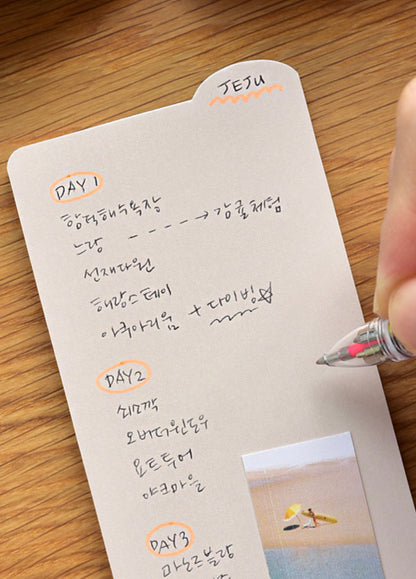 JEJU
DAY 1
함덕해수욕장
느랑 ----→ 감귤체험
선재다원
해랑스테이
아쿠아리움 + 다이빙☆
DAY2
쇠소깍
오버더윈도우
요트투어
야크마을
DAY3
마노르블랑